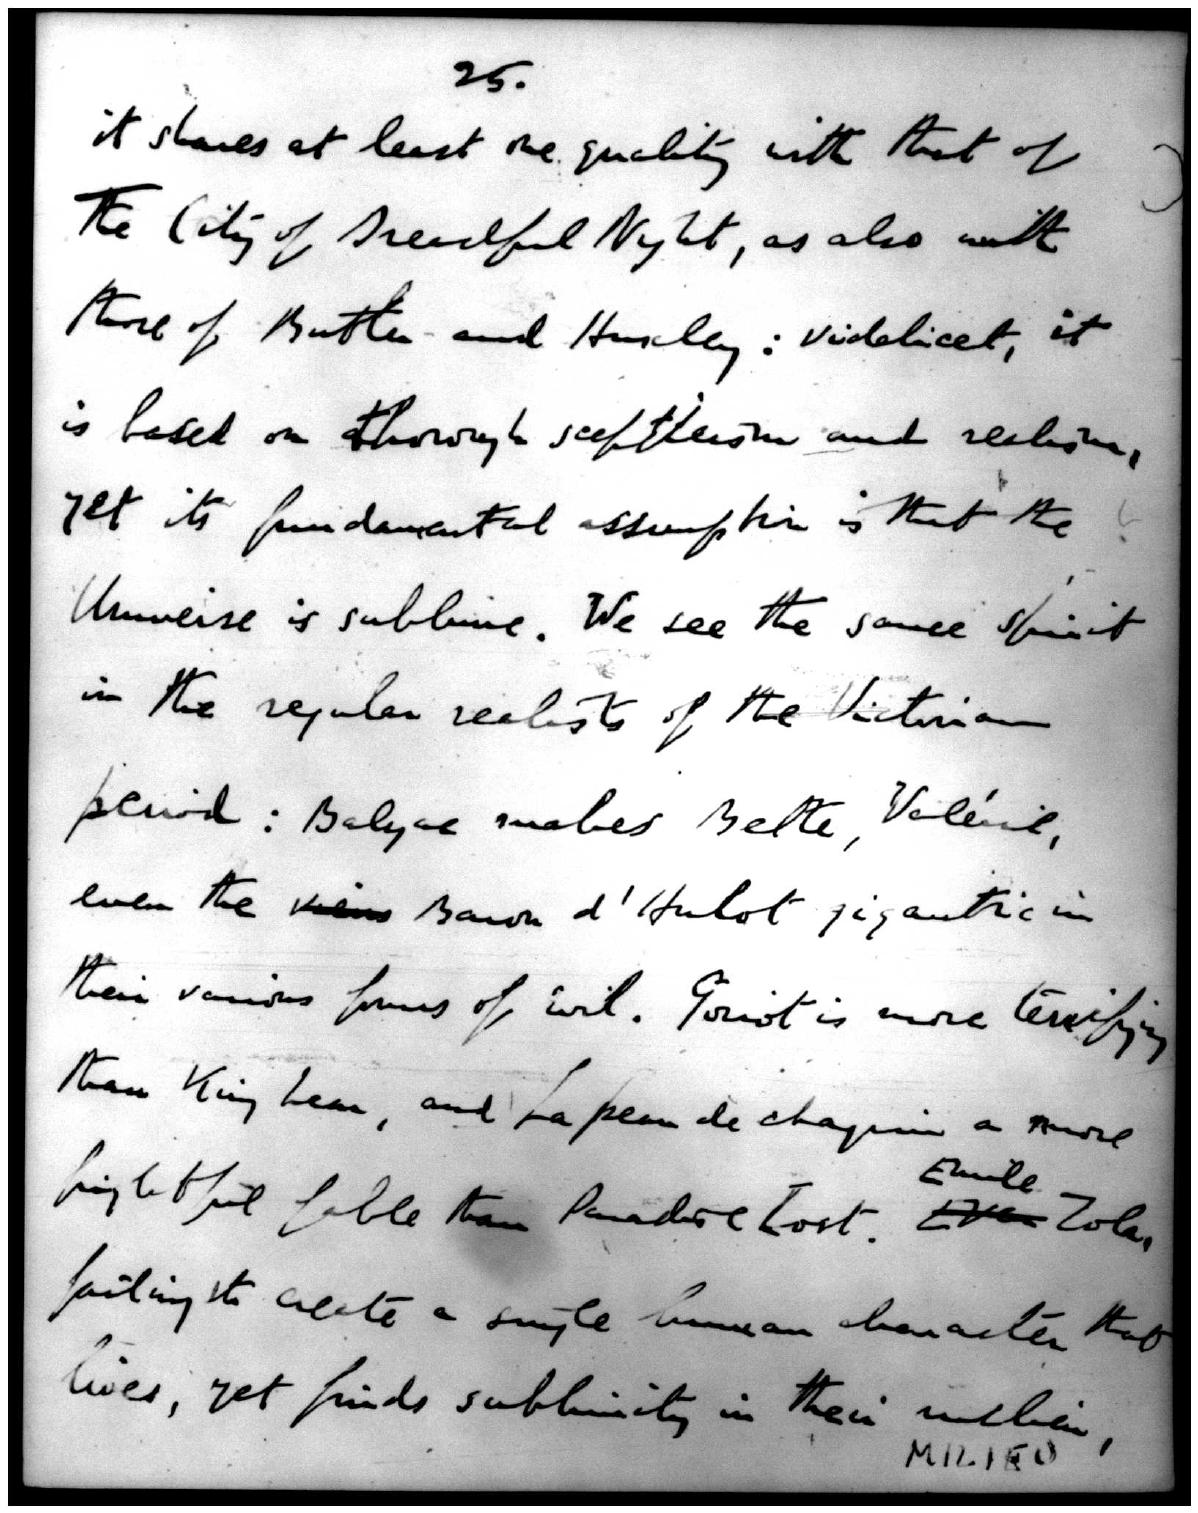 25.
it shares at least one quality with that of
The City of Dreadful Night, as also with
those of Butler and Huxley : videlicet, it
is based on thorough scepticism and realism,
yet its fundamental assumption is that the
Universe is sublime. We see the same spirit
in the regular realists of the Victorian
period : Balzac makes Bette, Valérie,
even the Baron d'Hulot gigantic in
their various forms of evil. Goriot is more terrifying
than King Lear, and La peau de chagrin a more
frightful fable than Paradise Lost. Emile Zola,
failing to create a single human character that
lives, yet finds sublimity in their milieu,
MILIEU